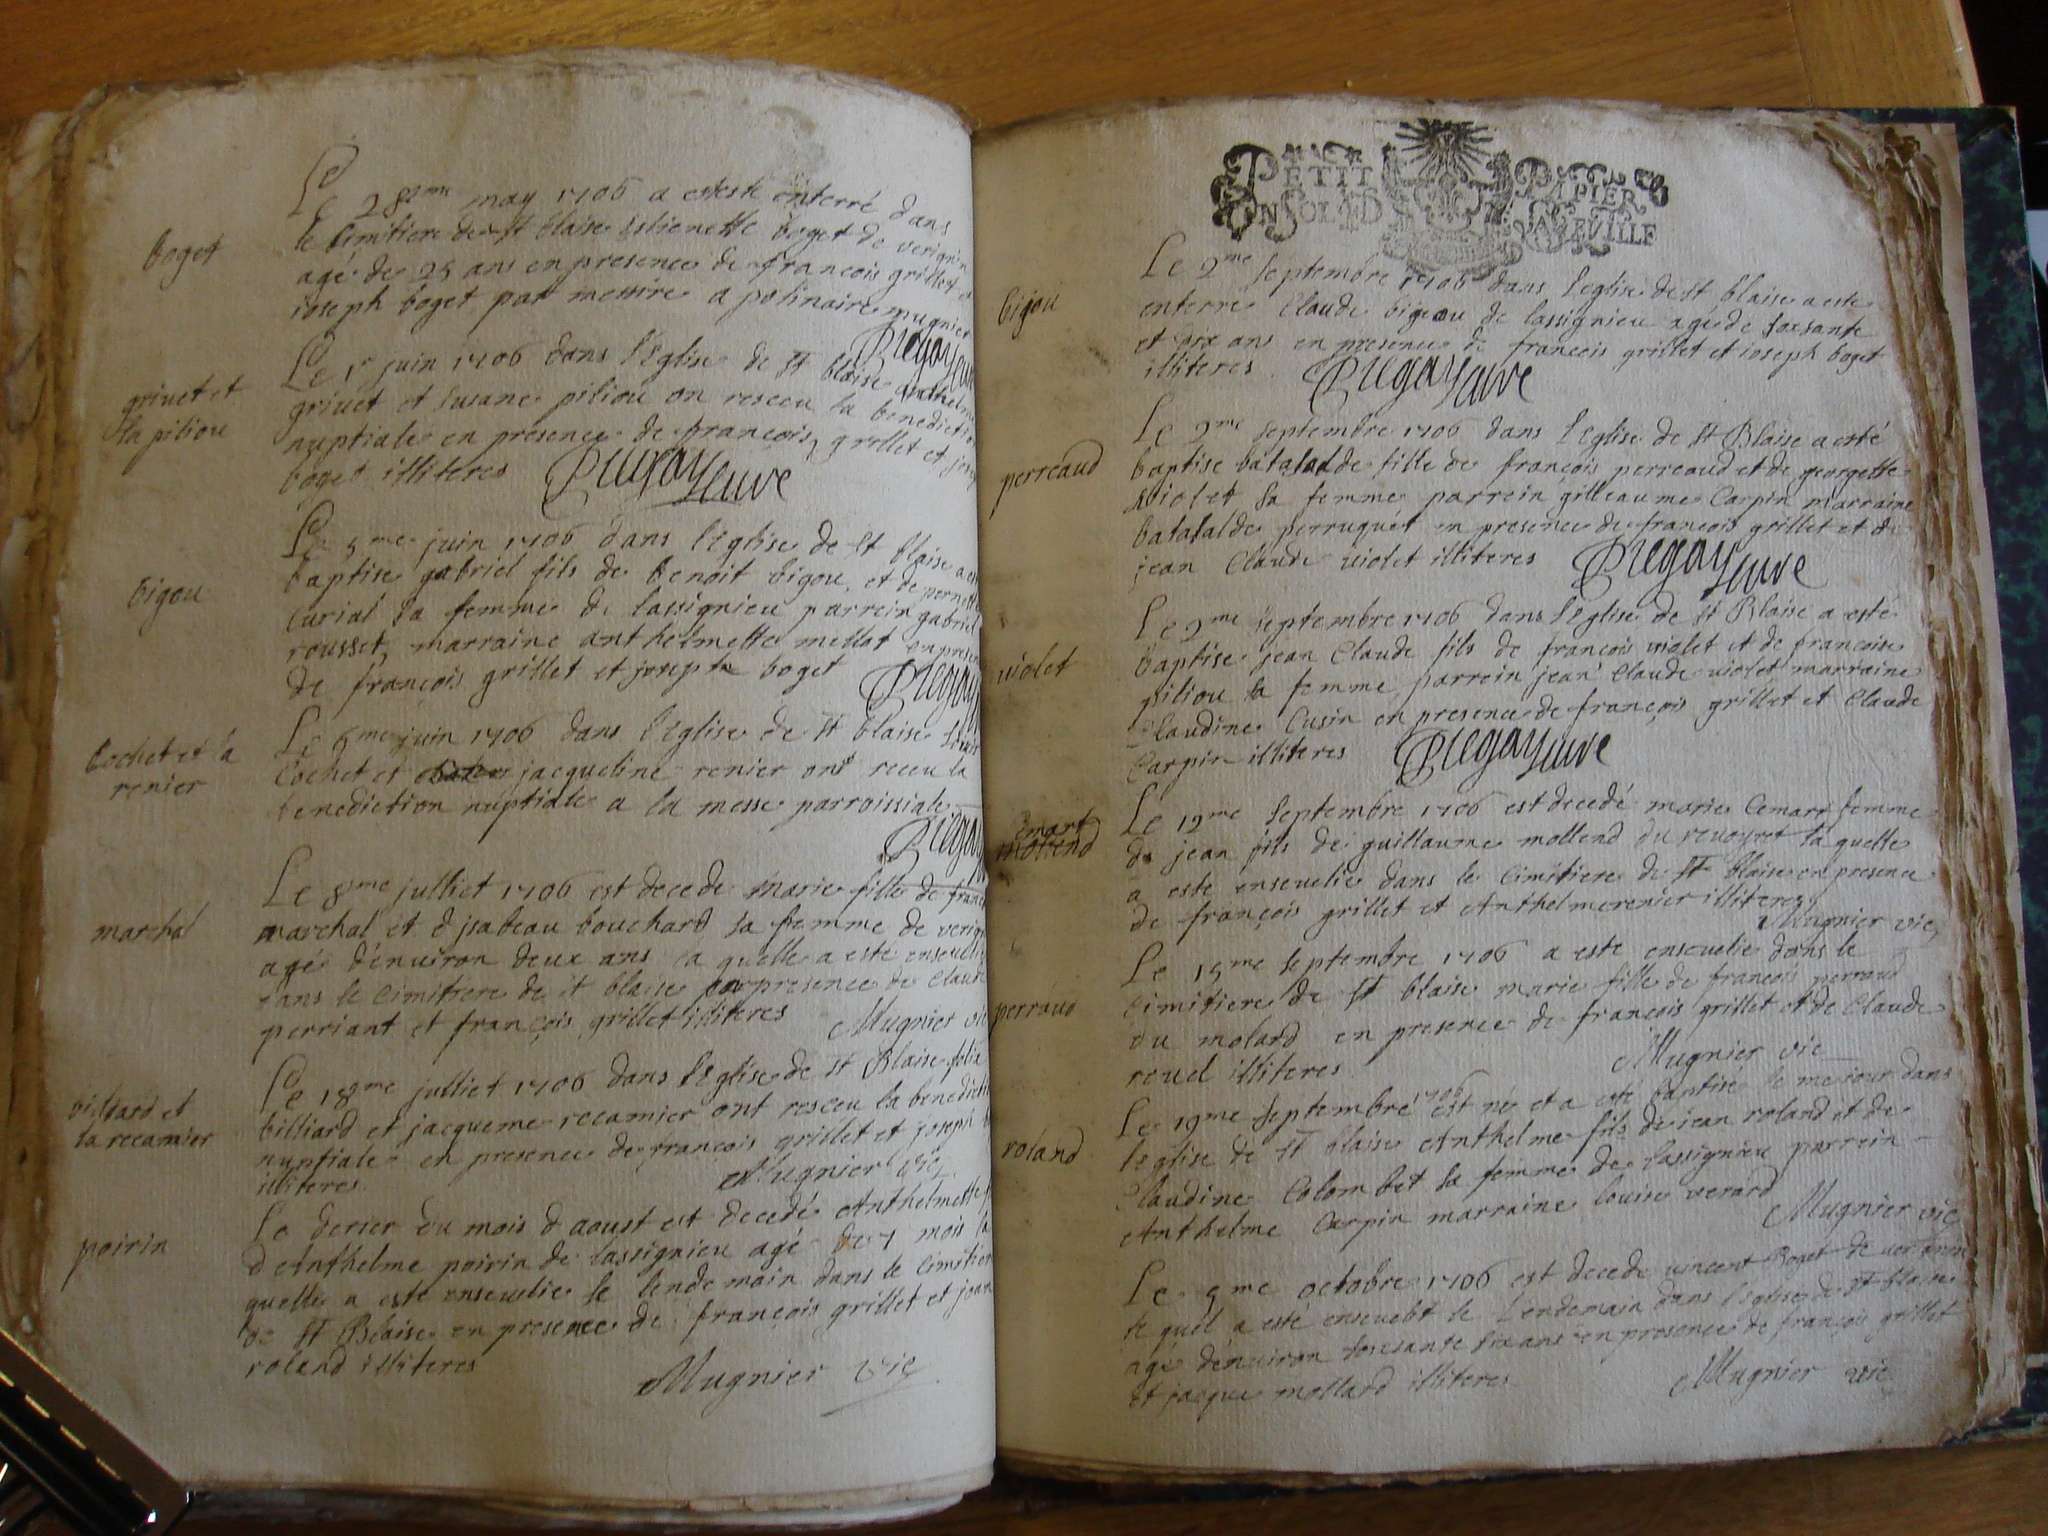 Le 28eme may 1706 a esté enterré dans
boget
le Cimitiere de st blaise estienette boget de verignin
agé de 25 ans en presence de françois grillet et
ioseph boget par messire apolinaire mugnier
Le 1r juin 1706 dans l'Eglise de st blaise anthelme
griuet et
la piliou
griuet et susane piliou on resceu la benediction
nuptiale en presence de françois grillet et
boget illiteres
Le 5me juin 1706 dans l'Eglise de st blaise a
bigou
baptise gabriel fils de benoit bigou et de pernette
Curial sa femme de lassignieu parrein gabriel
rousset marraine anthelmette mellat en
de françois grillet et joseph boget
Le 6me juin 1706 dans l'Eglise de st blaise
Cochet et à
renier
Cochet et jacqueline renier ont receu la
benediction nuptiale a la messe parroissiale
Le 8me julliet 1706 est decede Marie fille de
marchal
marchal et d jsabeau bouchard sa femme de
agé d'enuiron deux ans la quelle a esté
dans le Cimitiere de st blaise presence de Claude
perriant et françois grillet illiteres Mugnier vic
Le 18me julliet 1706 dans l'Eglise de st Blaise
billiard et
la recamier
billiard et jacqueme recamier ont resceu la
nuptiale en presence de françois grillet et joseph
illiteres Mugnier vic
Le derier du mois d aoust est decedé Anthelmette
poirin
d Anthelme poirin de lassignieu agé de 7 mois la
quelle a esté enseuelie le lendemain dans le Cimitiere
de st Blaise en presence de françois grillet et
roland illiteres
Mugnier vic
PETIT PAPIER
Le 2me septembre 1706 dans l'eglise de st blaise a este
bigou
enterré Claude bigeou de lassignieu agé de soisante
et dix ans en presence de françois grillet et ioseph boget
illiteres
Le 2me septembre 1706 dans l'Eglise de st Blaise a esté
perreaud
baptise fille de françois perreaud et de georgette
violet sa femme parrein gilleaume Carpin marraine
perruquét en presence de françois grillet et de
jean Claude violet illiteres
Le 2me septembre 1706 dans l'Eglise de st Blaise a esté
violet
baptise jean Claude fils de françois violet et de francoise
piliou sa femme parrein jean Claude violet marraine
Claudine Cusin en presence de françois grillet et Claude
Carpin illiteres
Le 12me septembre 1706 est decedé marie Cemart femme
emart
mollend
de jean fils de guillaume mollend du reuoyret la quelle
a este enseuelie dans le Cimitiere de st blaise en presence
de françois grillet et Anthelme renier illiteres
Mugnier vic
Le 15me septembre 1706 a este enseuelie dans le
Cimitiere de st blaise marie fille de françois perraud
perraud
du molard en presence de françois grillet et de Claude
reuel illiteres Mugnier vic
1706
Le 19me septembre est né et a esté baptisé le me iour dans
roland
l'eglise de st blaise Anthelme fils de jean roland et de
Claudine Colombet sa femme de lassignieu parrein
Anthelme Carpin marraine louise verard
Mugnier vic
Le 5me octobre 1706 est decede vincent Boget de verignin
le quel a esté le Lendemain dans l'eglise de st blaise
agé d'enuiron soissante six ans en presence de françois grillet
et jacque mollard illiteres Mugnier vic